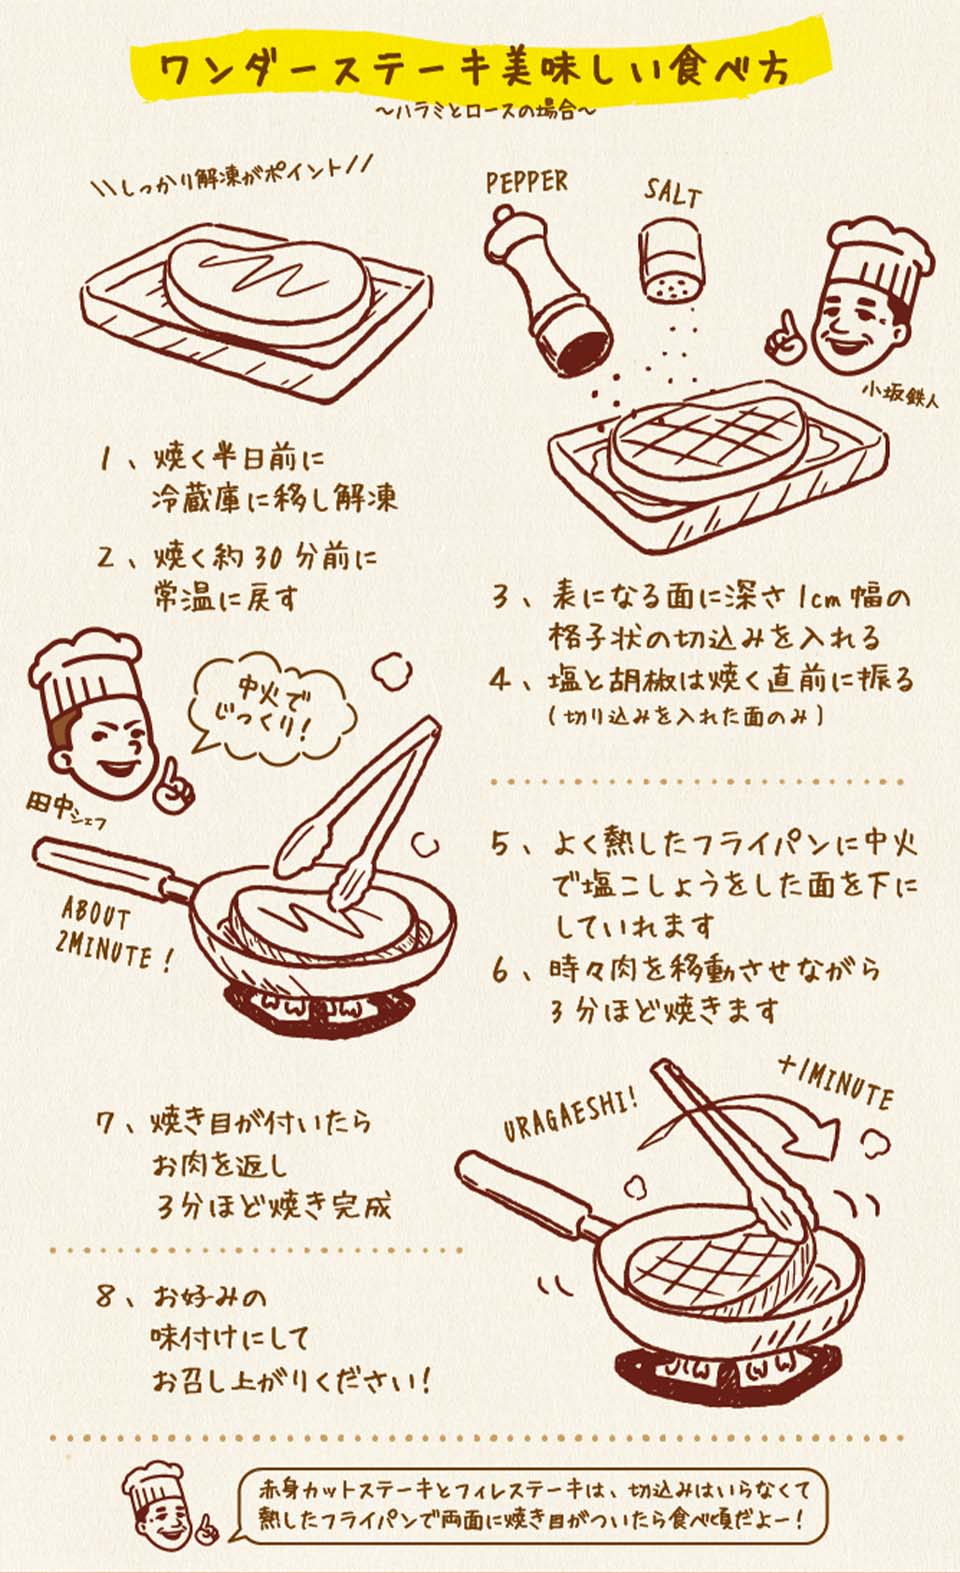 ワンダーステーキ美味しい食べ方
～ハラミとロースの場合～
\\しっかり解凍がポイント//
PEPPER
SALT
小坂鉄人
1、焼く半日前に
冷蔵庫に移し解凍
2、焼く約30分前に
常温に戻す
3、表になる面に深さ1cm幅の
格子状の切込みを入れる
4、塩と胡椒は焼く直前に振る
(切り込みを入れた面のみ)
中火で
じっくり!
田中シェフ
ABOUT
2MINUTE!
5、よく熱したフライパンに中火
で塩こしょうをした面を下に
していれます
6、時々肉を移動させながら
3分ほど焼きます
URAGAESHI!
+1MINUTE
7、焼き目が付いたら
お肉を返し
3分ほど焼き完成
8、お好みの
味付けにして
お召し上がりください!
赤身カットステーキとフィレステーキは、切込みはいらなくて
熱したフライパンで両面に焼き目がついたら食べ頃だよー!